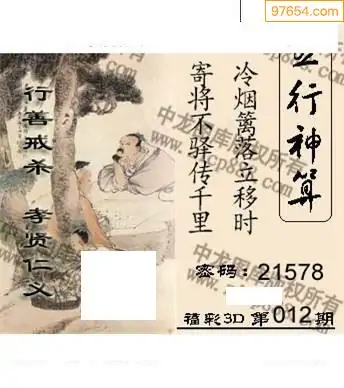 97654.com
五行神算
冷烟篱落立移时
寄将不驿传千里
行善戒杀 孝贤仁义
密码:21578
福彩3D 第012期
中龙图库版权所有
中龙图库版权所有